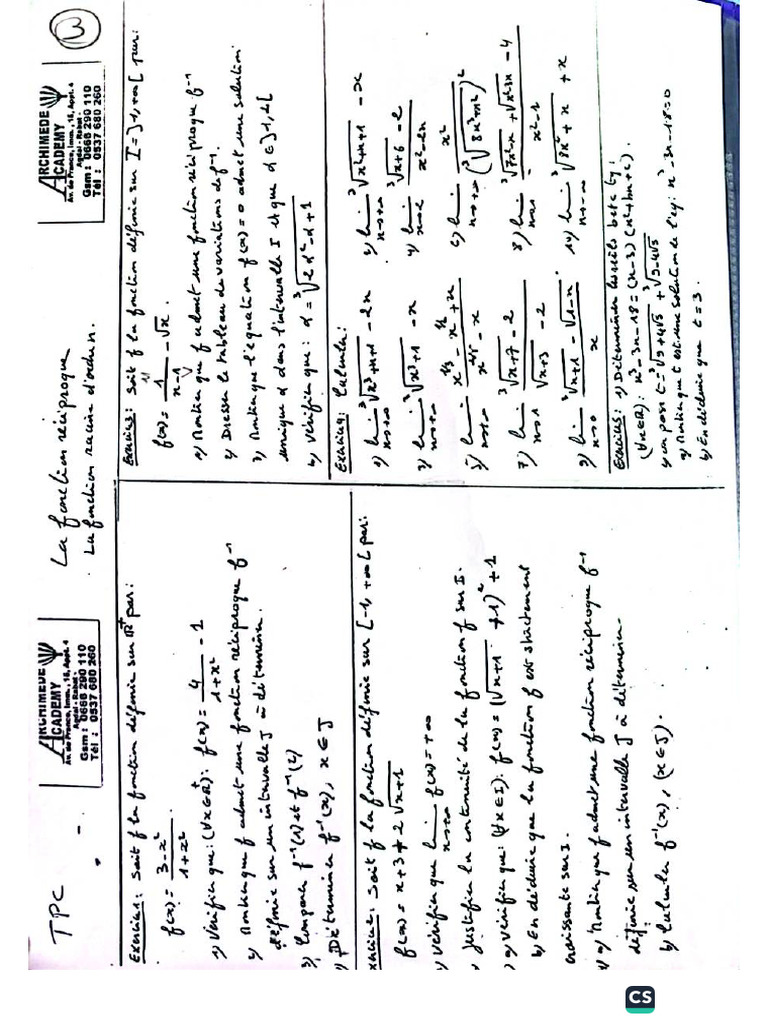 TPC
ARCHIMEDE
ACADEMY
Av. de France, Imm., 18, Appt. 4
Agdal - Rabat -
Gsm : 0668 290 110
Tél : 0537 680 260
La fonction réciproque
La fonction racine d'ordre n.
ARCHIMEDE
ACADEMY
Av. de France, Imm., 18, Appt. 4
Agdal - Rabat -
Gsm : 0668 290 110
Tél : 0537 680 260
3
Exercice 1: Soit f la fonction définie sur ℝ⁺ par:
f(x) = (3-x²)/(1+x²)
1) Vérifier que: (∀x∈ℝ⁺): f(x) = 4/(1+x²) - 1
2) Montrer que f admet une fonction réciproque f⁻¹
définie sur un intervalle J à déterminer.
3) Comparer f⁻¹(1) et f⁻¹(2)
Déterminer f⁻¹(x), x∈J
Exercice 2: Soit f la fonction définie sur [-1,+∞[ par:
f(x) = x+3+2√(x+1)
Vérifier que lim x→+∞ f(x) = +∞
Justifier la continuité de la fonction f sur I.
a) Vérifier que: (∀x∈I): f(x) = (√(x+1) +1)² + 1
b) En déduire que la fonction f est strictement
croissante sur I.
a) Montrer que f admet une fonction réciproque f⁻¹
définie sur un intervalle J à déterminer.
b) Calculer f⁻¹(x), (x∈J).
Exercice 3: Soit f la fonction définie sur I=]1,+∞[ par:
f(x) = 1/(x-1) - √x
1) Montrer que f admet une fonction réciproque f⁻¹
2) Dresser le tableau de variations de f⁻¹.
3) Montrer que l'équation f(x)=0 admet une solution
unique α dans l'intervalle I et que α∈]1,2[
b) Vérifier que: α = ³√(2α²-α+1)
Exercice 4: Calculer:
1) lim x→+∞ ³√(x³+x+1) - 2x
2) lim x→+∞ ³√(x²+x+1) - x
3) lim x→+∞ ³√(x³+1) - x
4) lim x→2 (³√(x+6) - 2)/(x²-2x)
5) lim x→+∞
7) lim x→1 (³√(x+7) - 2)/(√(x+3) - 2)
9) lim x→0 (³√(x+1) - √(1-x))/x
10) lim x→-∞ ³√(8x²+x) + x
Exercice 5: 1) Déterminer les réels b et c tq:
(∀x∈ℝ): x³-3x-18 = (x-3)(x²+bx+c).
2) on pose t = ³√(9+4√5) + ³√(9-4√5)
a) Montrer que t est une solution de l'eq: x³-3x-18=0
b) En déduire que t=3.
CS